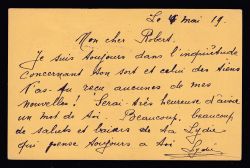 Le 4 mai 19.
Mon cher Robert.
Je suis toujours dans l'inquiétude
concernant ton sort et celui des tiens
N'as-tu reçu aucunes de mes
nouvelles! Serai très heureuse d'avoir
un mot de toi. Beaucoup, beaucoup
de saluts et baisers de ta Lydie
qui pense toujours à toi
Lydie